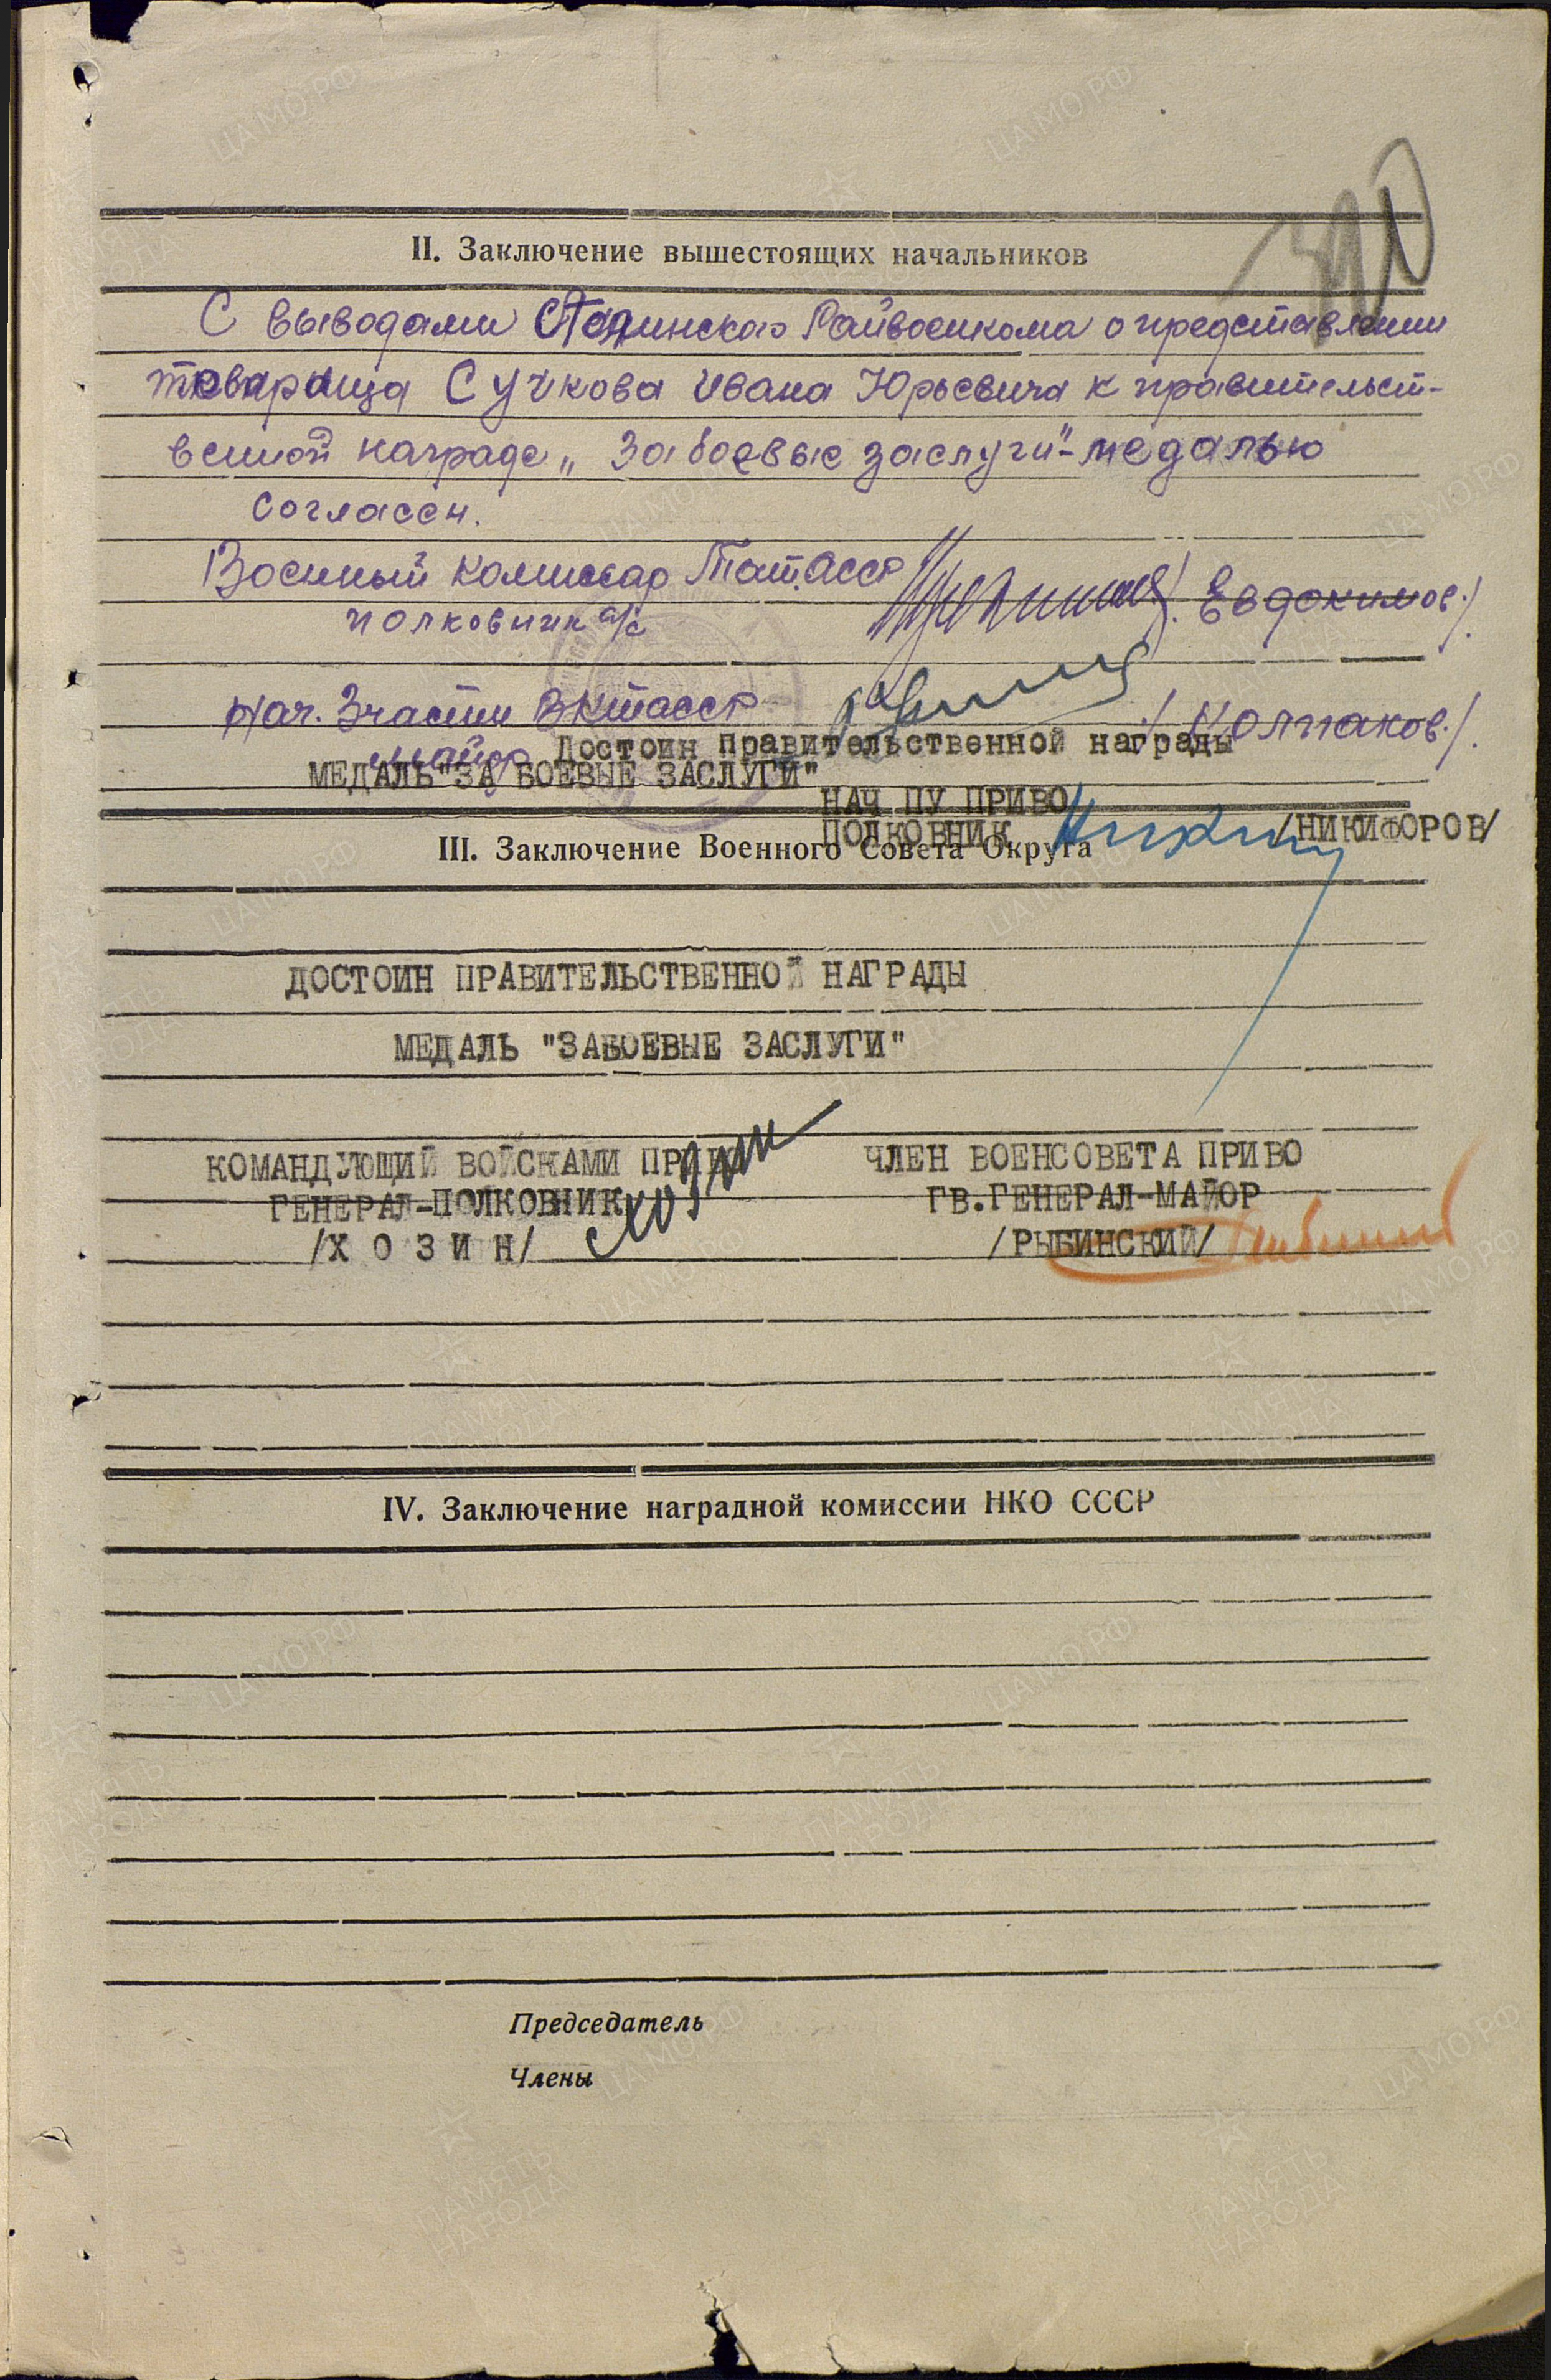 II. Заключение вышестоящих начальников
С выводами Райвоенкома о представлении
товарища Сучкова Ивана Юрьевича к правительст-
венной награде „За боевые заслуги"-медалью
согласен.
Военный комиссар ТатАССР
полковник а/с /Евдокимов./
Нач. 3 части ВКТАССР /Колпаков./
майор Достоин правительственной награды
МЕДАЛЬ "ЗА БОЕВЫЕ ЗАСЛУГИ"
НАЧ ПУ ПРИВО
ПОЛКОВНИК /НИКИФОРОВ/
III. Заключение Военного Совета Округа
ДОСТОИН ПРАВИТЕЛЬСТВЕННОЙ НАГРАДЫ
МЕДАЛЬ "ЗАБОЕВЫЕ ЗАСЛУГИ"
КОМАНДУЮЩИЙ ВОЙСКАМИ ПРИВО ЧЛЕН ВОЕНСОВЕТА ПРИВО
ГЕНЕРАЛ-ПОЛКОВНИК ГВ.ГЕНЕРАЛ-МАЙОР
/Х О З И Н/ Хозин /РЫБИНСКИЙ/
IV. Заключение наградной комиссии НКО СССР
Председатель
Члены